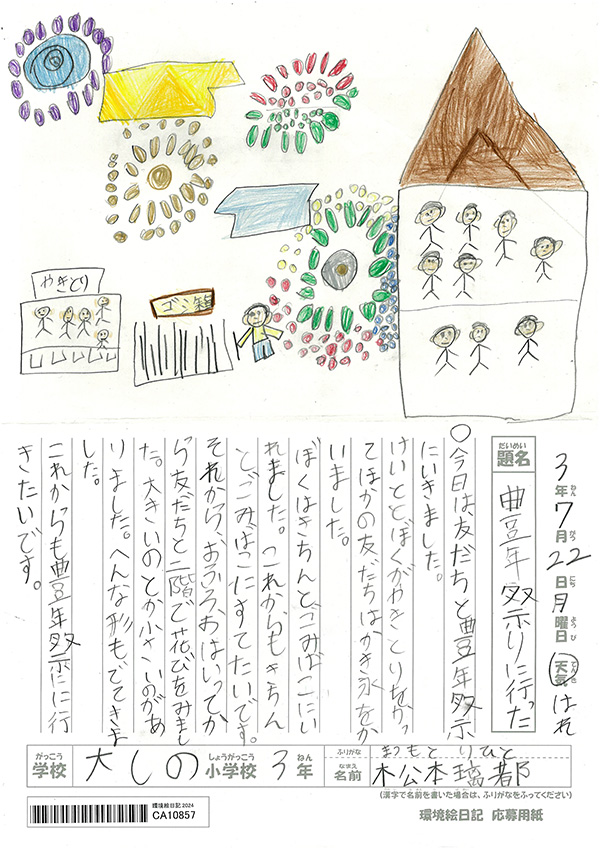 やきとり
ゴミ箱
3年7月22日月曜日 天気 はれ
ねん がつ にち ようび てんき
だいめい
題名
豊年祭りに行った
○今日は友だちと豊年祭り
にいきました。
けいととぼくがやきとりをかっ
てほかの友だちはかき氷をか
いました。
ぼくはきちんとごみばこにい
れました。これからもきちん
とごみばこにすてたいです。
それから、おふろおはいってか
ら友だちと二階で花びをみまし
た。大きいのとか小さいのがあ
りました。へんな形もでてきま
した。
これからも豊年祭りに行
きたいです。
がっこう しょうがっこう ねん
学校 大しの小学校 3年
ふりがな まつもと りひと
なまえ
名前 松本璃都
(漢字で名前を書いた場合は、ふりがなをふってください)
環境絵日記 2024
CA10857
環境絵日記 応募用紙